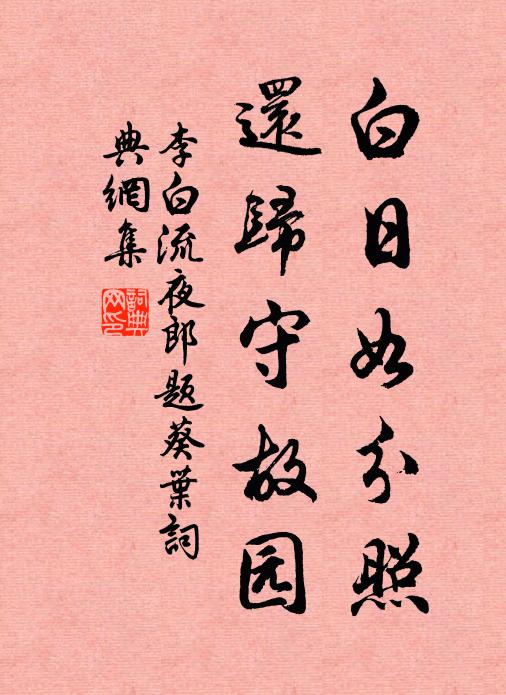 白日如分照
還歸守故园
李白流夜郎題葵葉詞
典網集
詞典
网印